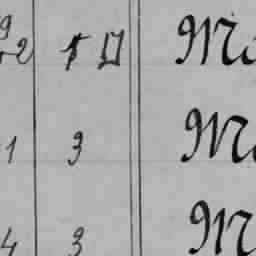 9
2 Ma
1 3 Ma
4 3 M